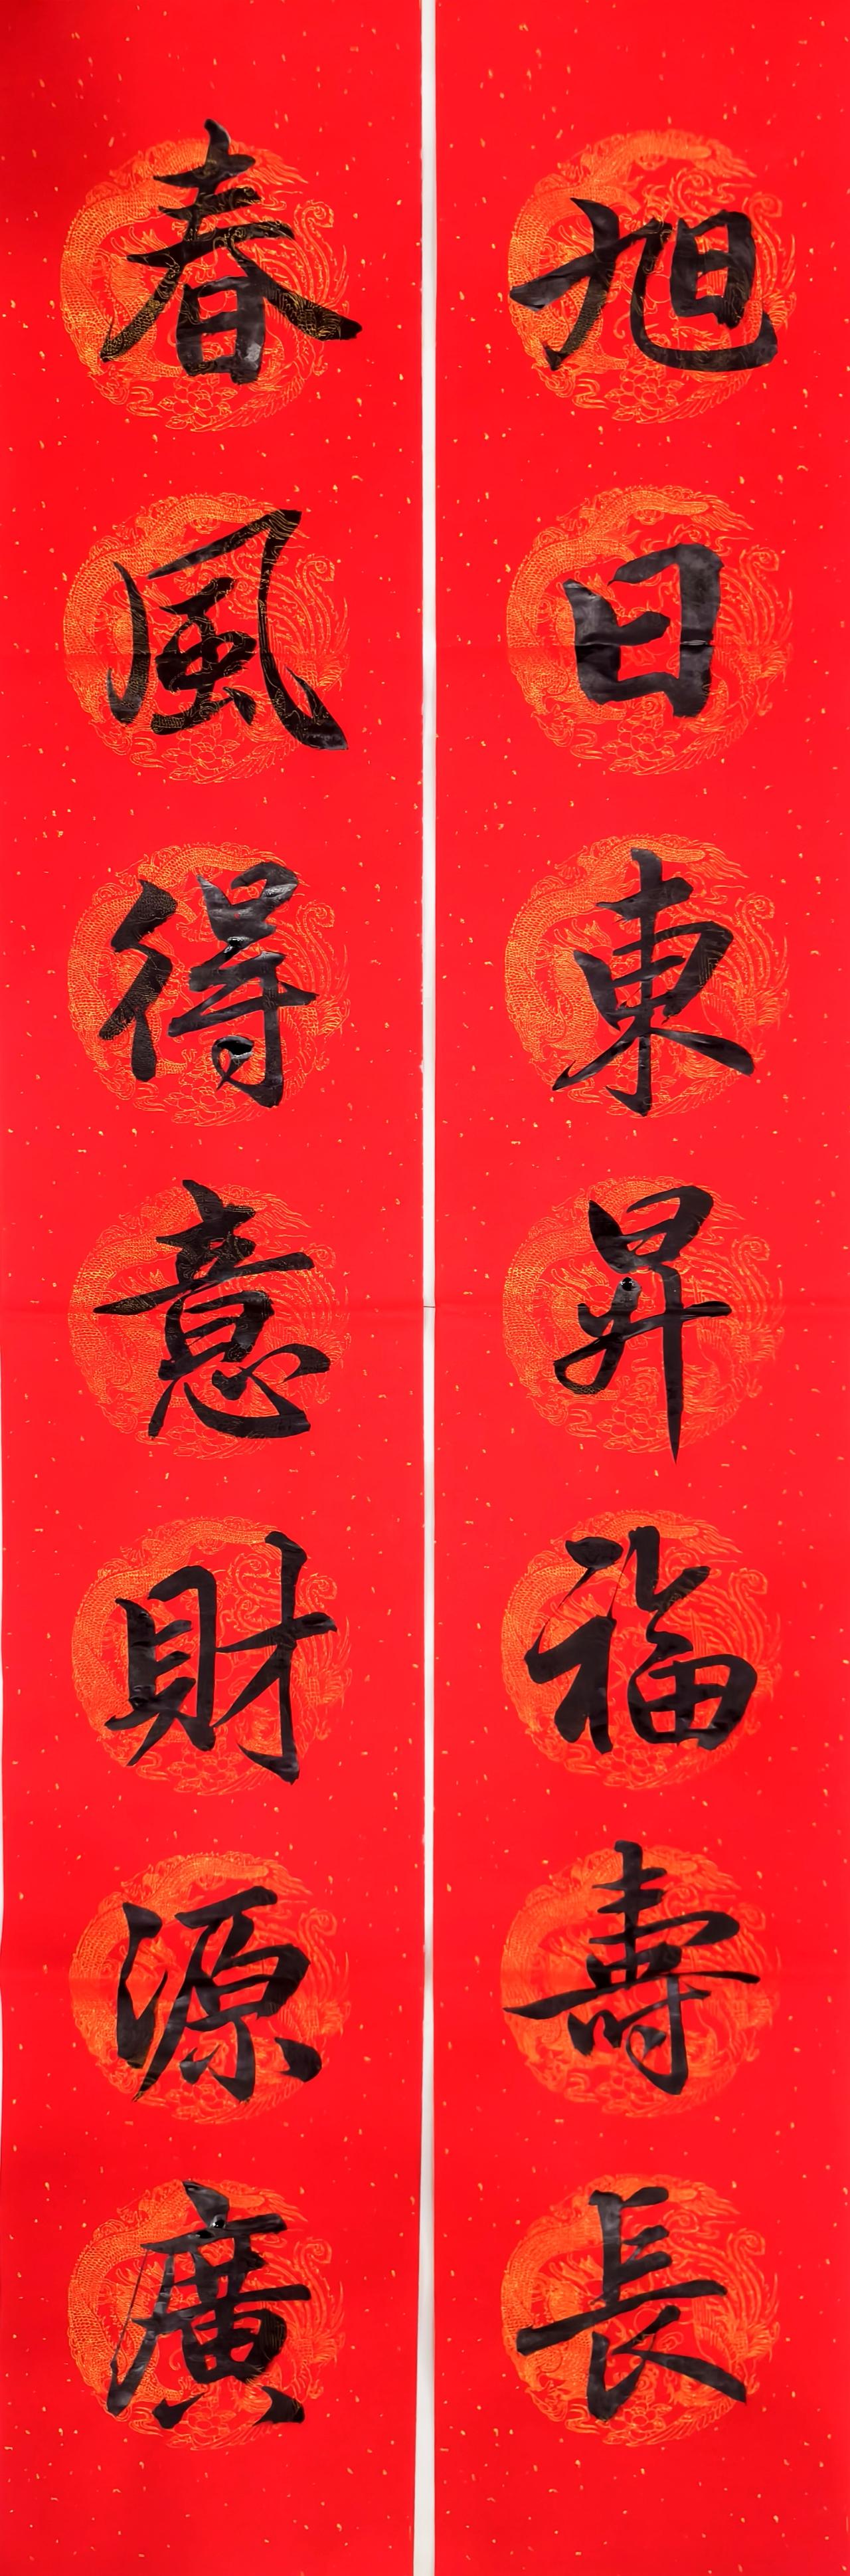 旭日東昇福壽長
春風得意財源廣